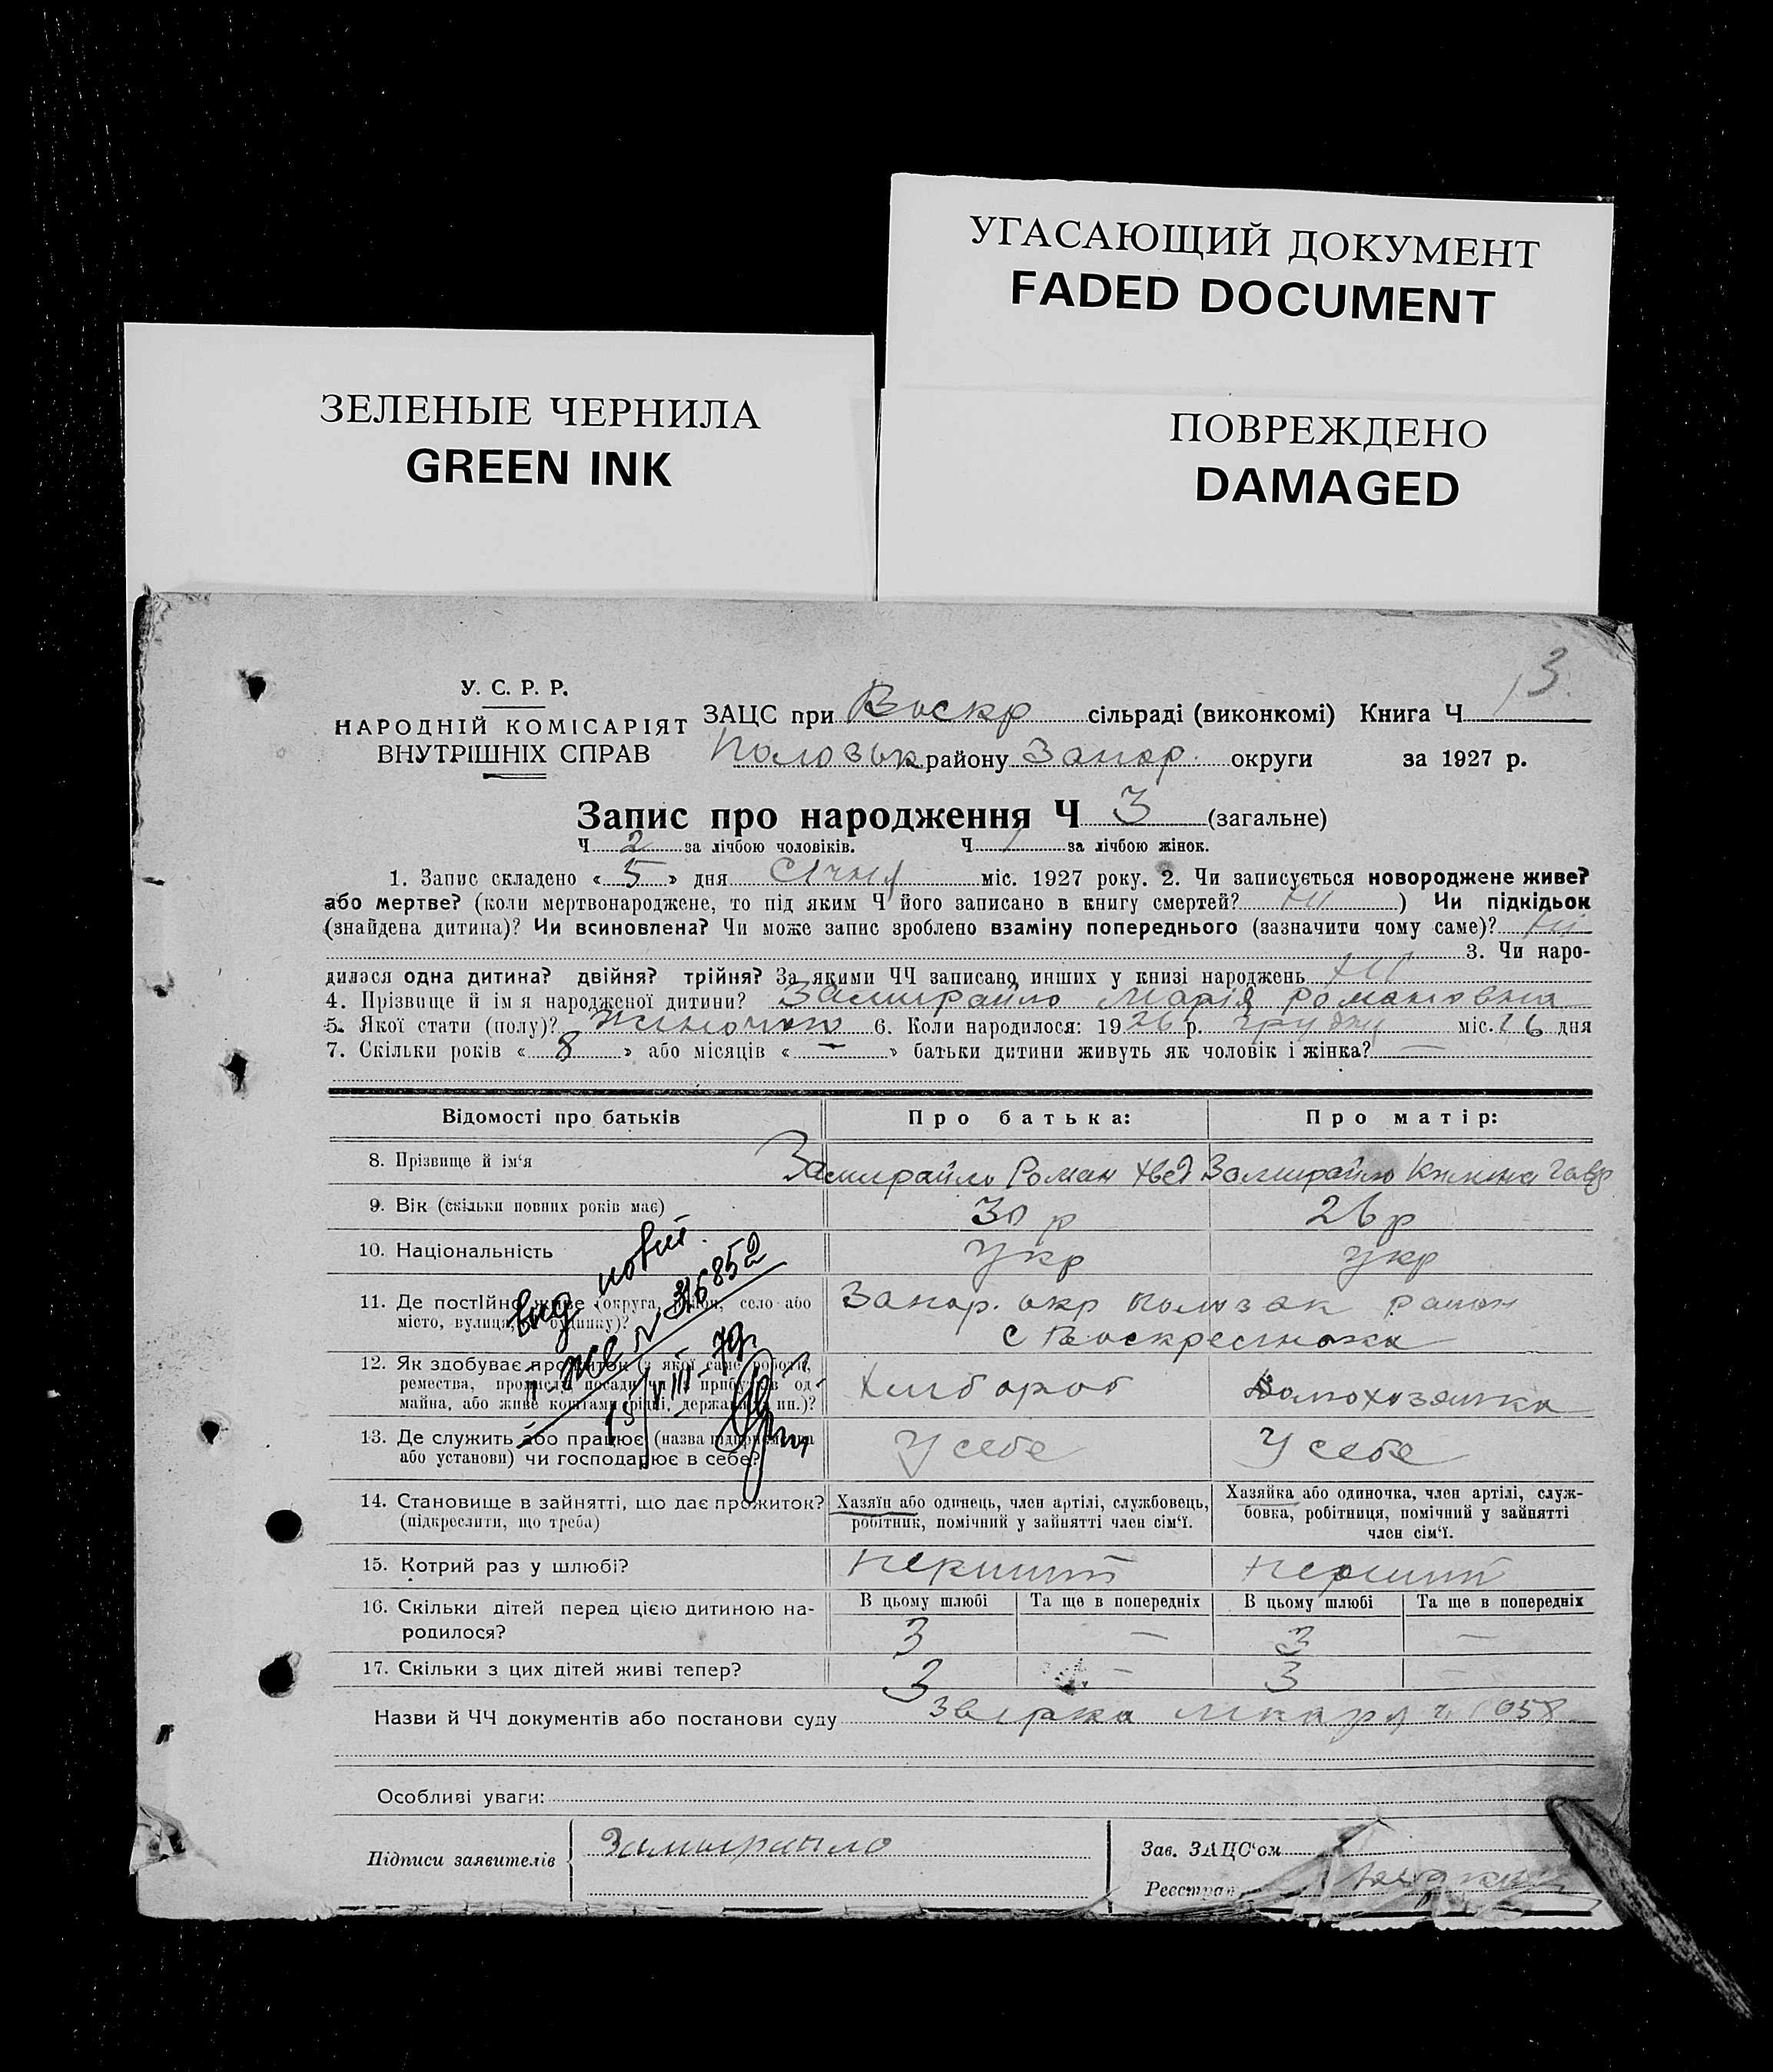 УГАСАЮЩИЙ ДОКУМЕНТ
FADED DOCUMENT
ЗЕЛЕНЫЕ ЧЕРНИЛА
GREEN INK
ПОВРЕЖДЕНО
DAMAGED
13
У. С. Р. Р.
НАРОДНІЙ КОМІСАРІЯТ
ВНУТРІШНІХ СПРАВ
ЗАЦС при Воскр сільраді (виконкомі) Книга Ч
району Запор. округи за 1927 р.
Запис про народження Ч 3 (загальне)
Ч 2 за лічбою чоловіків. Ч 1 за лічбою жінок.
1. Запис складено « 5 » дня Січня міс. 1927 року. 2. Чи записується новороджене живе?
або мертве? (коли мертвонароджене, то під яким Ч його записано в книгу смертей? Ні ) Чи підкідьок
(знайдена дитина)? Чи всиновлена? Чи може запис зроблено взаміну попереднього (зазначити чому саме)? Ні
3. Чи наро-
дилася одна дитина? двійня? трійня? За якими ЧЧ записано инших у книзі народжень Ні
4. Прізвище й імя народженої дитини? Замирайло Марія Романовна
5. Якої стати (полу)? 6. Коли народилося: 1926 р. грудня міс. 26 дня
7. Скільки років « 8 » або місяців « — » батьки дитини живуть як чоловік і жінка? —
Відомості про батьків Про батька: Про матір:
8. Прізвище й ім'я Замирайло Роман Хвед Замирайло Гавр
9. Вік (скільки повних років має) 30 р 26 р
10. Національність укр укр
11. Де постійно живе (округа, район, село або
місто, вулиця, № будинку)? Запор. окр район
с Воскресенка
12. Як здобуває прожиток (з якої саме роботи,
ремества, промислу, посади чи з прибутків од
майна, або живе коштами рідні, держави й ин.)? Хлібороб Домохозяйка
13. Де служить або працює (назва підприємства
або установи) чи господарює в себе? У себе У себе
вид новий
№ 316852
15/VIII-72
14. Становище в зайнятті, що дає прожиток?
(підкреслити, що треба)
Хазяїн або одинець, член артілі, службовець,
робітник, помічний у зайнятті член сім'ї.
Хазяйка або одиночка, член артілі, служ-
бовка, робітниця, помічний у зайнятті
член сім'ї.
15. Котрий раз у шлюбі? перший перший
16. Скільки дітей перед цією дитиною на-
родилося?
В цьому шлюбі Та ще в попередніх В цьому шлюбі Та ще в попередніх
3 — 3 —
17. Скільки з цих дітей живі тепер? 3 — 3 —
Назви й ЧЧ документів або постанови суду лікаря ч. 1058
Особливі уваги:
Підписи заявителів Замирайло
Зав. ЗАЦС'ом
Реєстрат